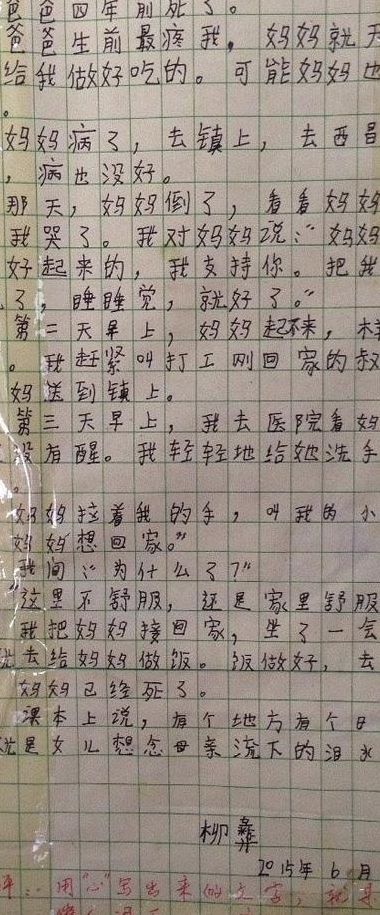 爸爸四年前死了。
爸爸生前最疼我，妈妈就天
给我做好吃的。可能妈妈也
。
妈妈病了，去镇上，去西昌
，病也没好。
那天，妈妈倒了，看看妈妈
我哭了。我对妈妈说：“妈妈
好起来的，我支持你。把我
了，睡睡觉，就好了。”
第二天早上，妈妈起不来，
。我赶紧叫打工刚回家的叔
妈送到镇上。
第三天早上，我去医院看妈
没有醒。我轻轻地给她洗手
。
妈妈拉着我的手，叫我的小
妈妈想回家。”
我问：“为什么了？”
这里不舒服，还是家里舒服
我把妈妈接回家，坐了一会
去给妈妈做饭。饭做好，去
妈妈已经死了。
课本上说，有个地方有个日
就是女儿想念母亲流下的泪水
柳彝
2015年6月
评：用“心”写出来的文字，就是